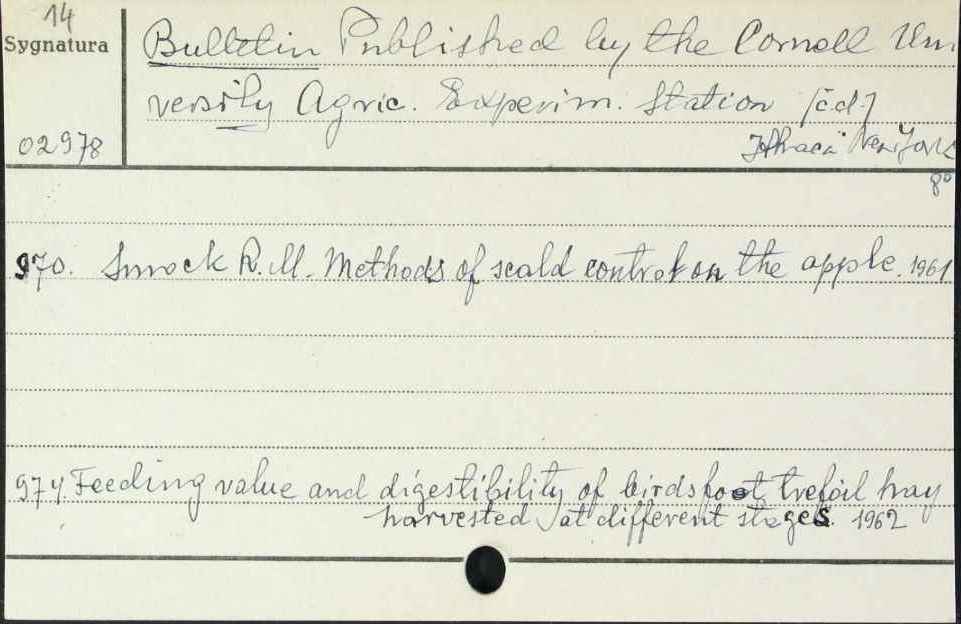 14
Sygnatura
Bulletin Published by the Cornell Uni
versity Agric. Experim. Station [c.d.]
02978
Ithaca New York
8°
970. Smock R. M. Methods of scald control on the apple. 1961
974. Feeding value and digestibility of birdsfoot trefoil hay
harvested at different stages. 1962